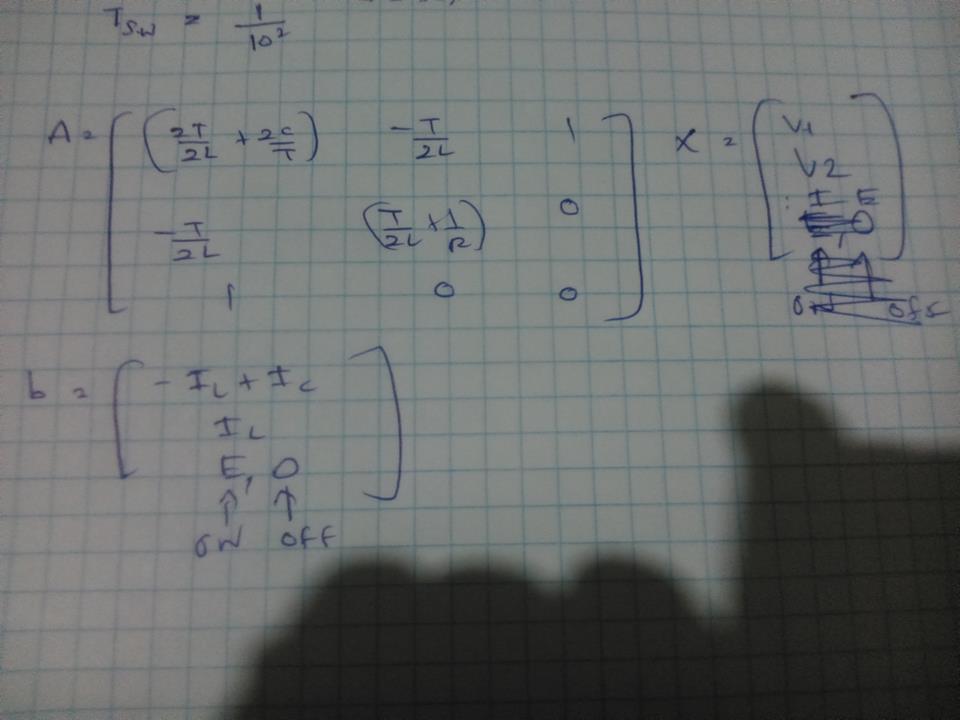 T_SW = 1/10^2
A = [ (2T/2L + 2C/T) -T/2L 1
-T/2L (T/2L + 1/R) 0
1 0 0 ]
X = [ V1
V2
I E ]
off
b = [ - I_L + I_C
I_L
E, 0 ]
↑ ↑
ON off